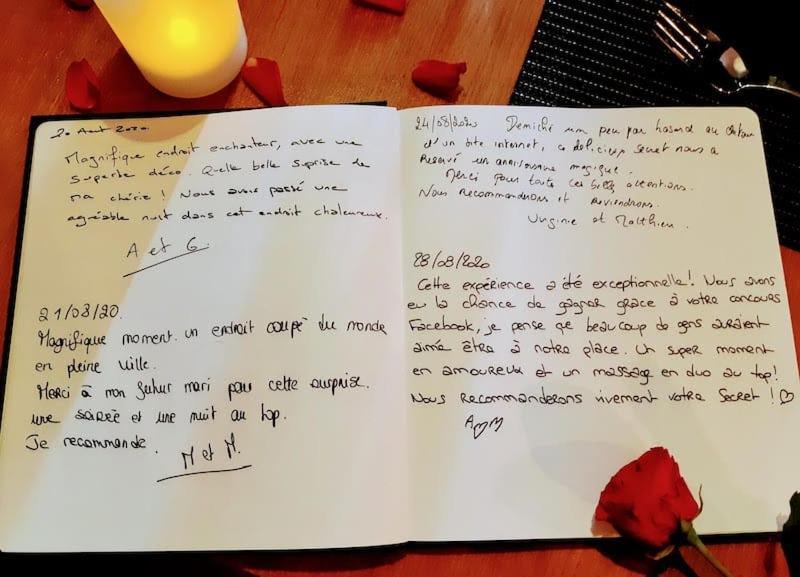 20 Aout 2020
Magnifique endroit enchanteur, avec une
superbe déco. Quelle belle suprise de
ma chérie ! Nous avons passé une
agréable nuit dans cet endroit chaleureux.
A et G.
21/08/20.
Magnifique moment. un endroit coupé du monde
en pleine ville.
Merci à mon futur mari pour cette surprise.
une soirée et une nuit au top.
Je recommande.
M et M.
24/08/2020 Deniché un peu par hasard au détour
d'un site internet, ce délicieux secret nous a
reservé un anniversaire magique.
Merci pour toute ces belles attentions.
Nous recommandrons et reviendrons.
Virginie et Matthieu.
28/08/2020
Cette expérience a été exceptionnelle! Nous avons
eu la chance de gagner grace à votre concours
Facebook, je pense qe beaucoup de gens auraient
aimé être à notre place. Un super moment
en amoureux et un massage en duo au top!
Nous recommanderons vivement votre Secret ! ♡
A ♡ M